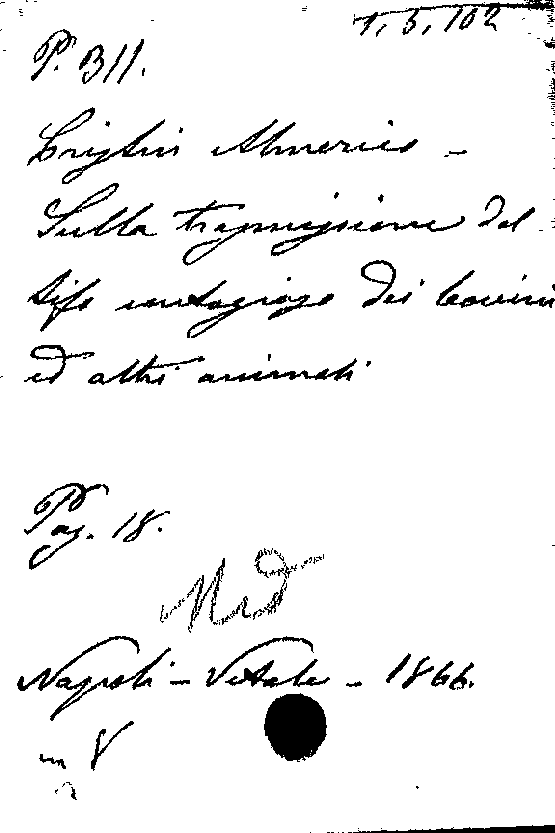 1, 5, 102
P. 311.
Cristin Almerico -
Sulla trasmissione del
tifo contagioso dei bovini
ed altri animali
Pag. 18.
Med
Napoli - Vitale - 1866.
in 8